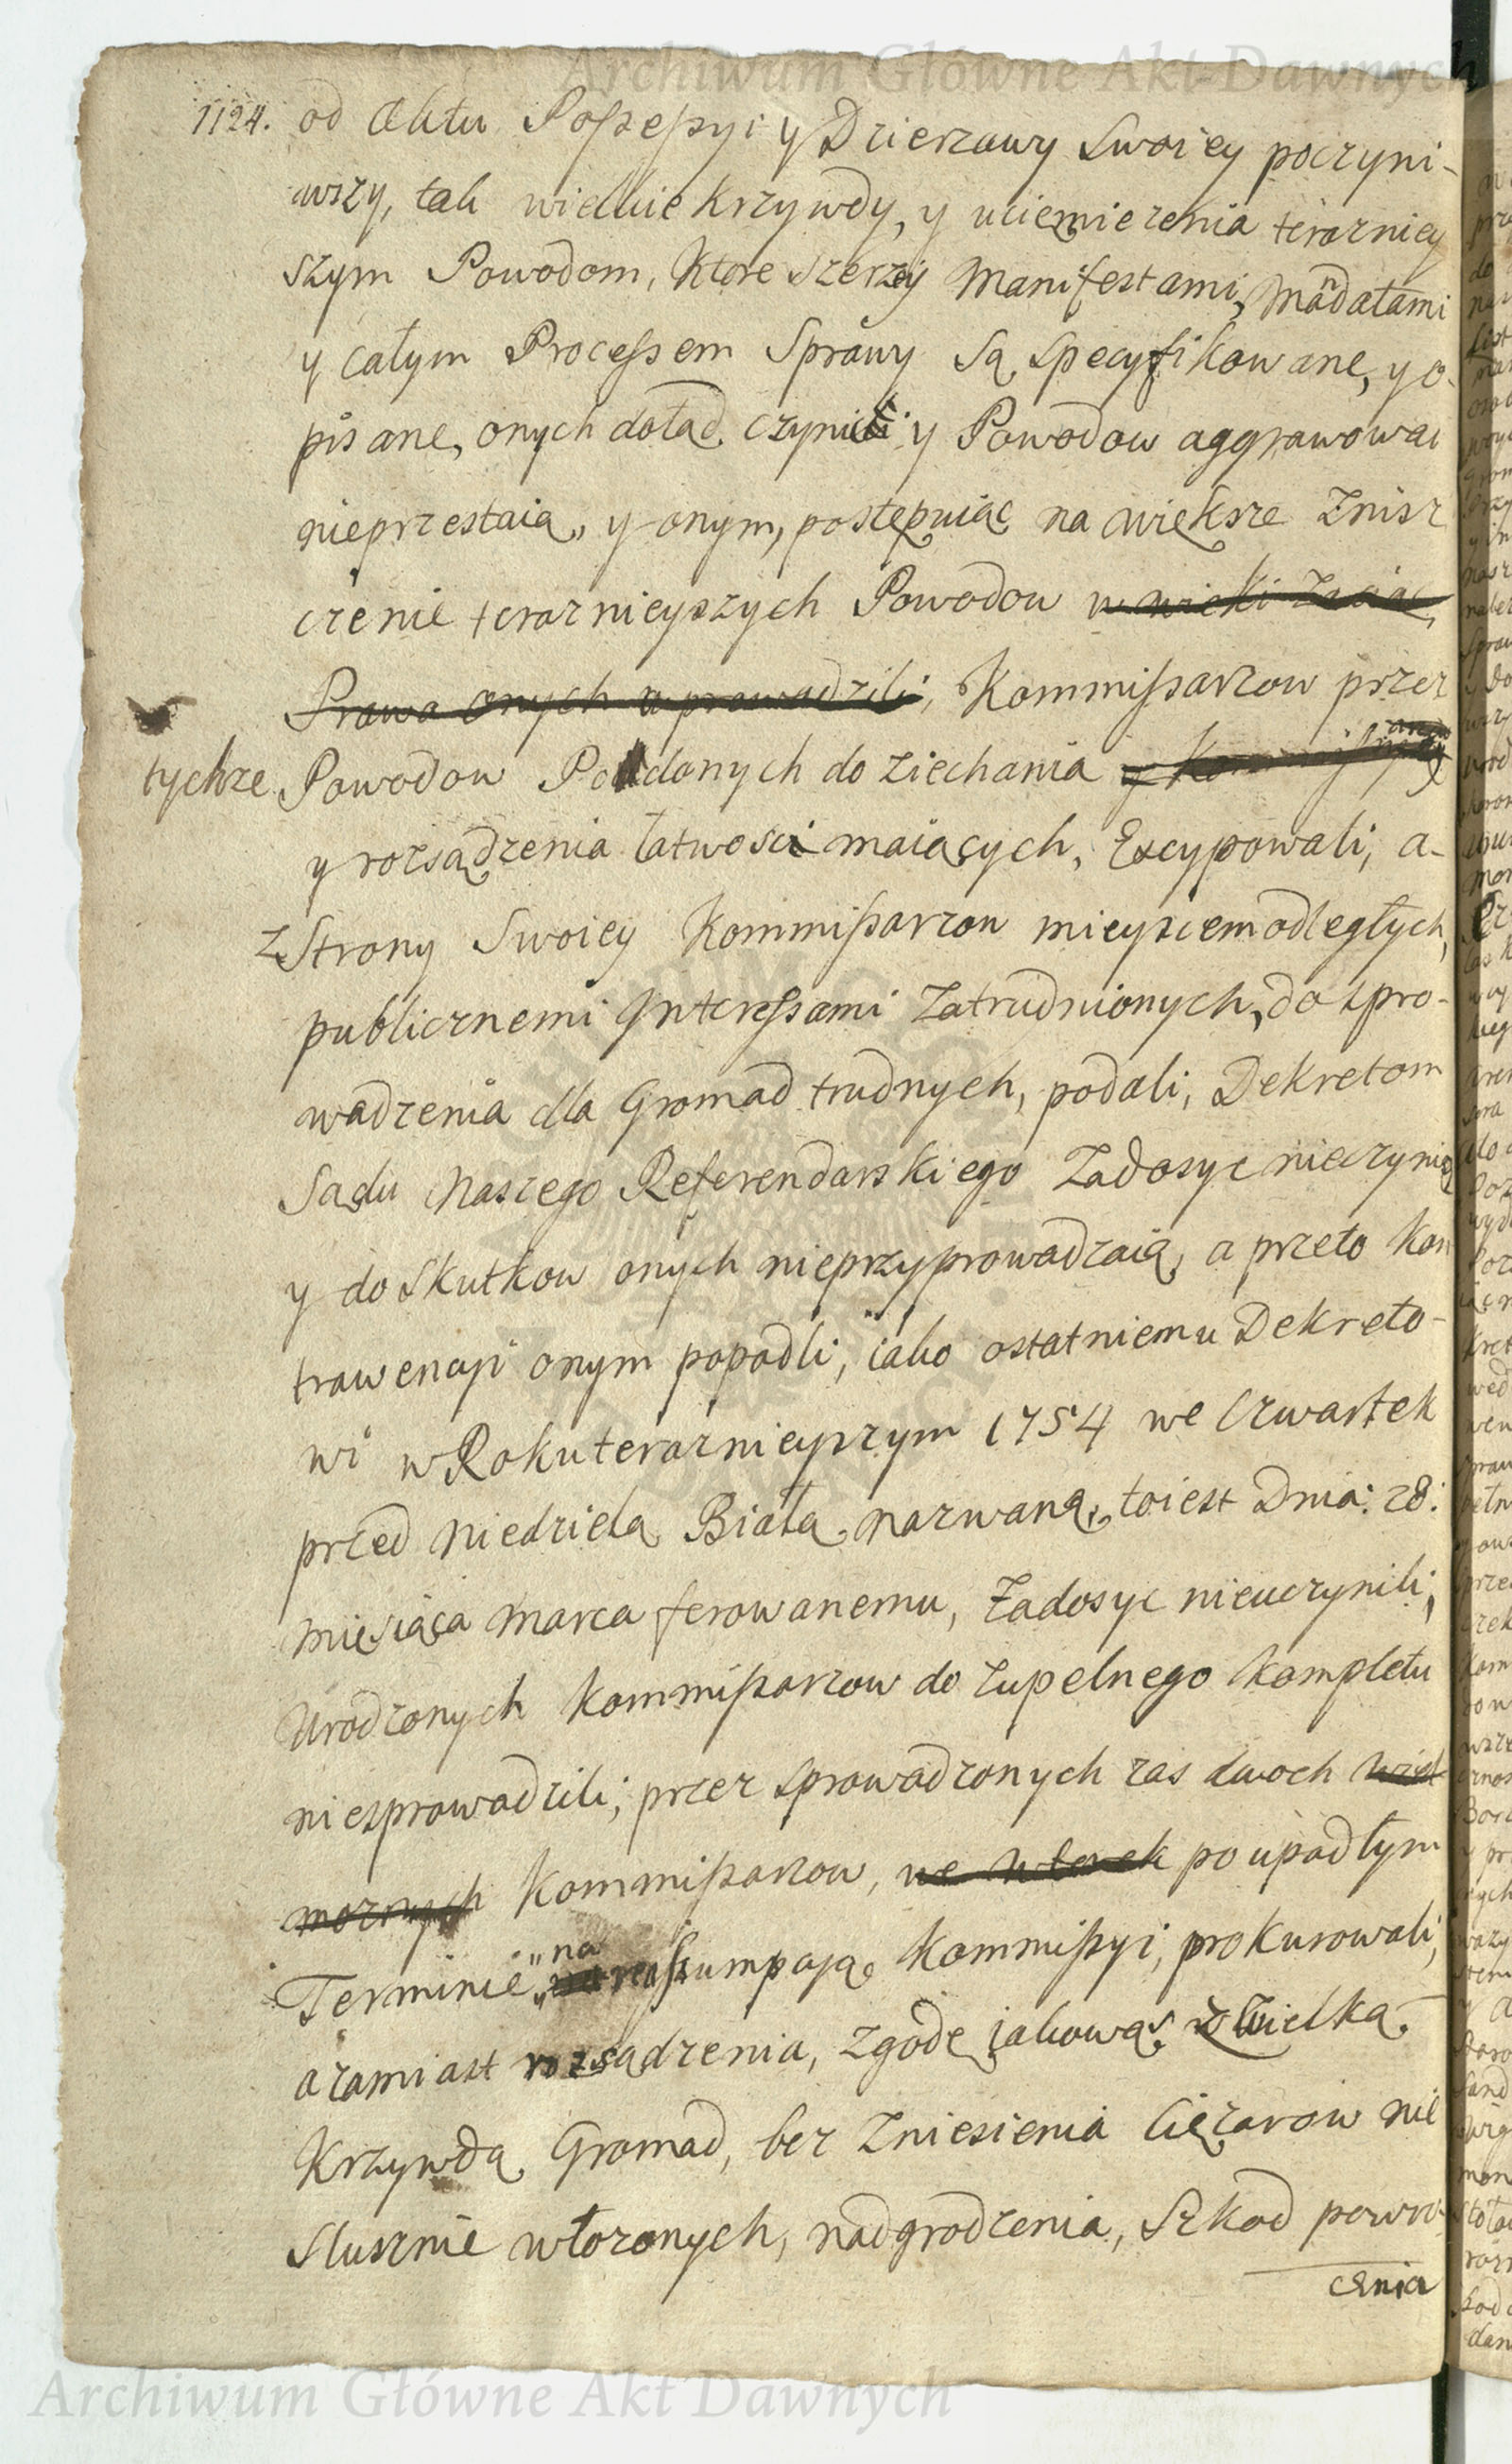 Archiwum Główne Akt Dawnych
1124. od Aktu Possessyi y Dzierzawy Swoiey poczyni-
wszy, tak wielkie krzywdy, y uciemiezenia terazniey
szym Powodom, ktore szerzey Manifestami, Mãdatami
y całym Processem Sprawy są specyfikowane, y o-
pisane, onych dotąd czynić y Powodow aggrawowac
nieprzestaią, y onym, postępuiąc na większe Znisz
czenie terazniejszych Powodow w wieki
Prawa onych wprowadzili, Kommissarzow przez
tychze Powodow Poddanych do ziechania y
y rozsądzenia łatwości maiących, Excypowali, a-
z Strony Swoiey Kommissarzow mieyscem odległych,
publicznemi Interessami Zatrudnionych, do spro-
wadzenia dla Gromad trudnych, podali, Dekretom
Sądu Naszego Referendarskiego Zadosyc nieczynią
y do Skutkow onych nieprzyprowadzaią, a przeto kon
trawencyi onym popadli, iako ostatniemu Dekreto-
wi w Roku terazniejszym 1754 we Czwartek
przed Niedzielą Białą nazwaną, toiest Dnia: 28:
miesiąca Marca ferowanemu, Zadosyc nieuczynili;
Urodzonych Kommissarzow do zupelnego kompletu
niesprowadzili, przez sprowadzonych zas dwoch Wiel
moznych Kommissarzow, we wtorek po upadłym
Terminie, na reassumpcyią Kommissyi, prokurowali,
azamiast rozsądzenia, zgodę iakowąs z Wielką
Krzywdą Gromad, bez Zniesienia Ciężarow nie
słusznie włozonych, nadgrodzenia, Szkod powro-
cenia
Archiwum Główne Akt Dawnych